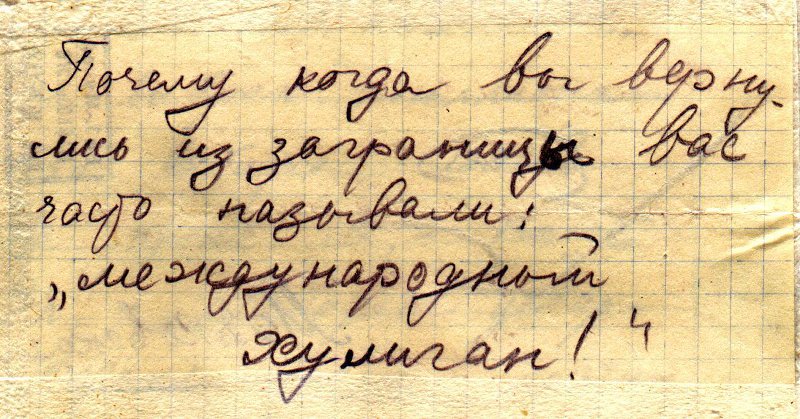 Почему когда вы верну-
лись из заграницы вас
часто называли:
„международной
хулиган!“